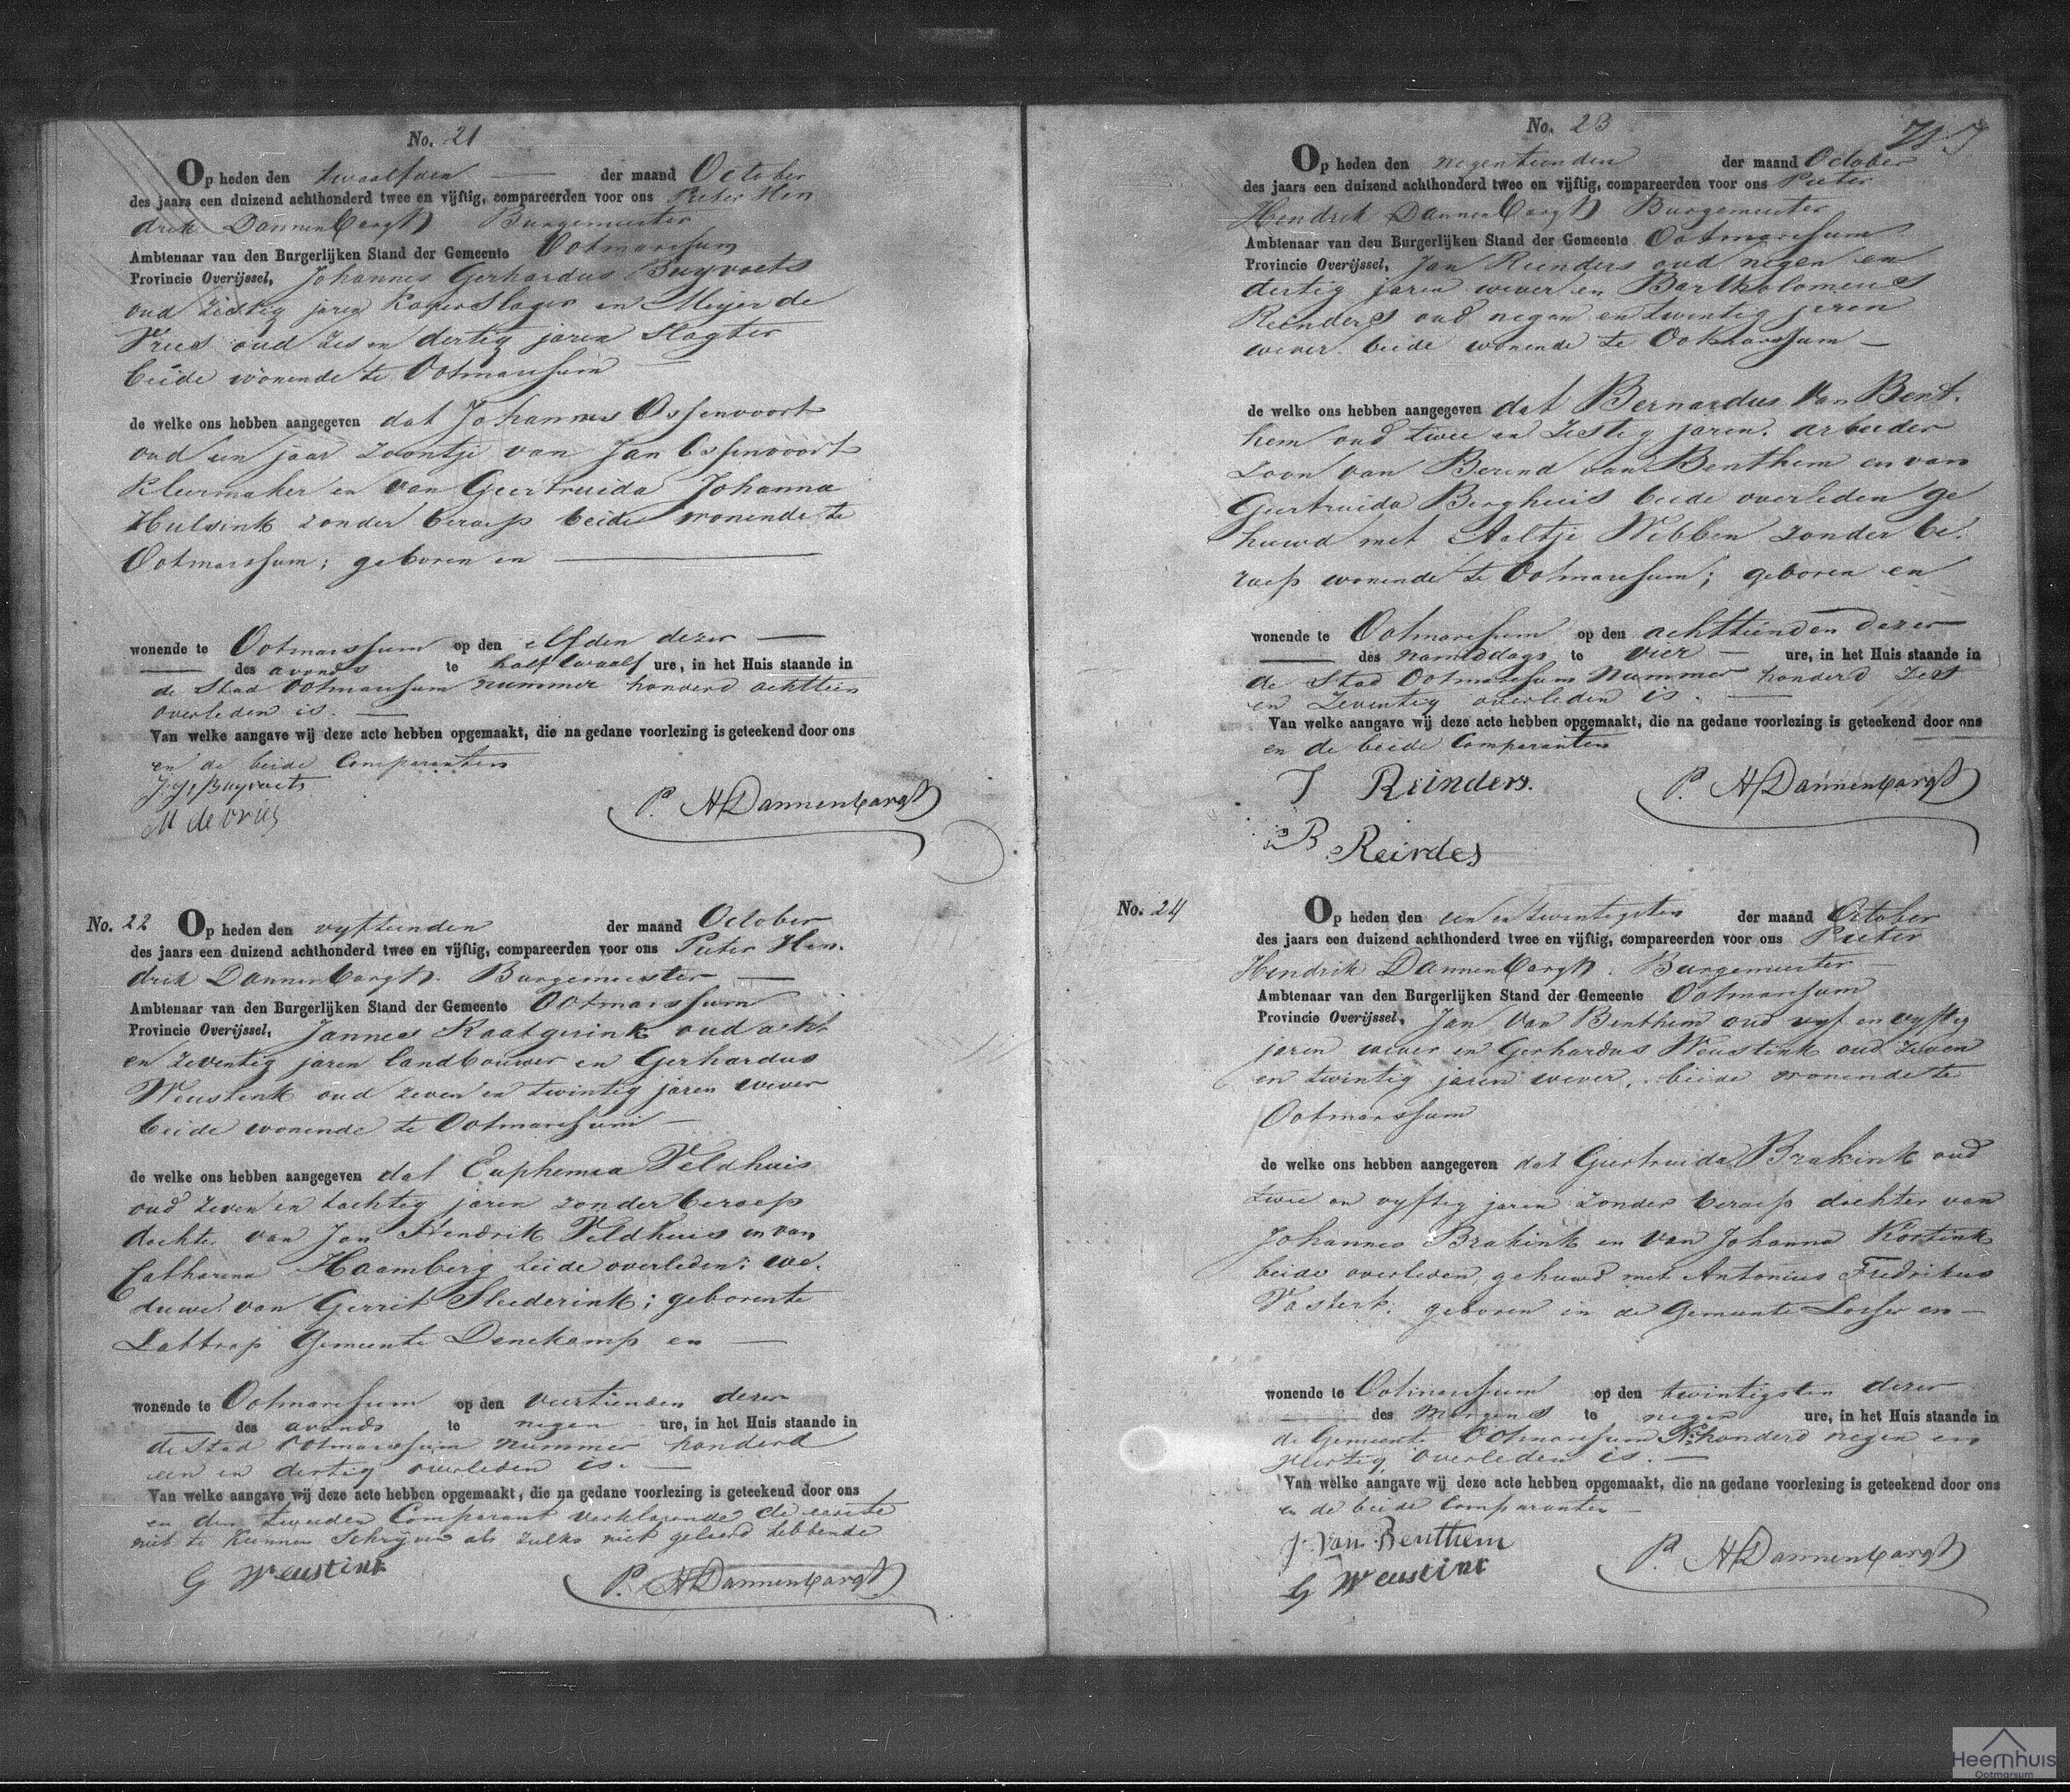 No. 21
Op heden den twaalfden — der maand October
des jaars een duizend achthonderd twee en vijftig, compareerden voor ons Pieter Hen
drik Dannenbargh Burgemeester
Ambtenaar van den Burgerlijken Stand der Gemeente Ootmarssum
Provincie Overijssel, Johannes Gerhardus Buyvoets
oud zestig jaren Koperslager en Meijer de
Vries oud zes en dertig jaren Slagter
beide wonende te Ootmarssum —
de welke ons hebben aangegeven dat Johannes Ossenvoort
oud een jaar zoontje van Jan Ossenvoort
Kleermaker en van Geertruida Johanna
Hulsink zonder beroep beide wonende te
Ootmarssum; geboren en —
wonende te Ootmarssum op den elfden dezer —
— des avonds te half twaalf ure, in het Huis staande in
de Stad Ootmarssum nummer honderd achttien
overleden is. —
Van welke aangave wij deze acte hebben opgemaakt, die na gedane voorlezing is geteekend door ons
en de beide Comparanten
J. G. Buyvoets
M de vries
P. H Dannenbargh
No. 22 Op heden den vyftienden der maand October
des jaars een duizend achthonderd twee en vijftig, compareerden voor ons Pieter Hen.
drik Dannenbargh. Burgemeester —
Ambtenaar van den Burgerlijken Stand der Gemeente Ootmarssum
Provincie Overijssel, Jannes Raatgerink oud acht
en zeventig jaren landbouwer en Gerhardus
Weustink oud zeven en twintig jaren wever
beide wonende te Ootmarssum —
de welke ons hebben aangegeven dat Euphemia Veldhuis
oud zeven en tachtig jaren zonder beroep
dochter van Jan Hendrik Veldhuis en van
Catharina Haamberg beide overleden; we.
duwe van Gerrit Sleiderink; geboren te
Lattrop Gemeente Denekamp en —
wonende te Ootmarssum op den veertienden dezer
— des avonds te negen ure, in het Huis staande in
de Stad Ootmarssum nummer honderd
een en dertig overleden is. —
Van welke aangave wij deze acte hebben opgemaakt, die na gedane voorlezing is geteekend door ons
en den tweeden Comparant verklarende de eerste
niet te kunnen Schryven als zulks niet geleerd hebbende
G Weustink
P. H Dannenbargh
No. 23
Op heden den negentienden der maand October
des jaars een duizend achthonderd twee en vijftig, compareerden voor ons Pieter
Hendrik Dannenbargh Burgemeester
Ambtenaar van den Burgerlijken Stand der Gemeente Ootmarssum
Provincie Overijssel, Jan Reinders oud negen en
dertig jaren wever en Bartholomeus
Reinders oud negen en twintig jaren
wever. beide wonende te Ootmarssum —
de welke ons hebben aangegeven dat Bernardus Van Bent.
hem oud twee en zestig jaren. arbeider
zoon van Berend van Benthem en van
Geertruida Berghuis beide overleden ge
huwd met Aaltje Wibben zonder be.
roep wonende te Ootmarssum; geboren en
wonende te Ootmarssum op den achttienden dezer
— des namiddags te vier — ure, in het Huis staande in
de Stad Ootmarssum Nummer honderd zes
en zeventig overleden is. —
Van welke aangave wij deze acte hebben opgemaakt, die na gedane voorlezing is geteekend door ons
en de beide Comparanten
J Reinders.
P. H Dannenbargh
B Reindes
No. 24 Op heden den een en twintigsten der maand October
des jaars een duizend achthonderd twee en vijftig, compareerden voor ons Pieter
Hendrik Dannenbargh. Burgemeester —
Ambtenaar van den Burgerlijken Stand der Gemeente Ootmarssum
Provincie Overijssel, Jan Van Benthem oud vyf en vyftig
jaren wever en Gerhardus Weustink oud zeven
en twintig jaren wever, beide wonende te
Ootmarssum
de welke ons hebben aangegeven dat Geertruida Brakink oud
twee en vyftig jaren zonder beroep dochter van
Johannes Brakink en van Johanna Kortink
beide overleden, gehuwd met Antonius Fredrikus
Vasterk; geboren in de Gemeente Losser en —
wonende te Ootmarssum op den twintigsten dezer
— des morgens te negen ure, in het Huis staande in
de Gemeente Ootmarssum No honderd negen en
veertig overleden is. —
Van welke aangave wij deze acte hebben opgemaakt, die na gedane voorlezing is geteekend door ons
en de beide Comparanten —
J. Van Benthem
G Weustink
P. H Dannenbargh
Heemhuis
Ootmarsum